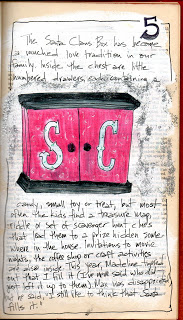 5
The Santa Claus Box has become
a much loved tradition in our
family. Inside the chest are little
numbered drawers, each containing a
S C
candy, small toy or treat, but most
often the kids find a treasure map,
riddle or set of scavenger hunt clues
that lead them to a prize hidden some-
where in the house. Invitations to movie
nights, the coffee shop or craft activities
are also inside. This year, Madeline figured
out that I fill it (she had said who did
not left it up to them). Max was disappointed
he said. I still like to think that Santa
fills it!